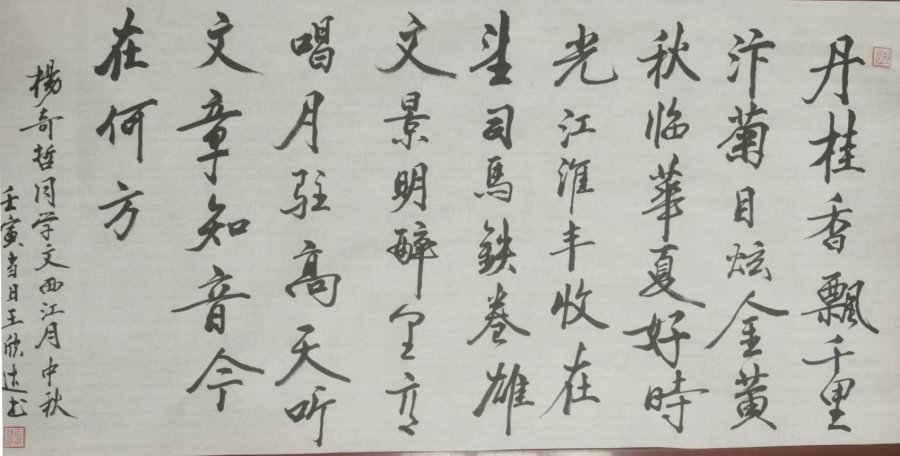 丹桂香飄千里
汴菊目炫金黄
秋临華夏好時
光江淮丰收在
望司馬鉄卷雄
文景明醉里高
唱月駐高天听
文章知音今
在何方
楊奇哲同学文西江月中秋
壬寅当日王欣达书